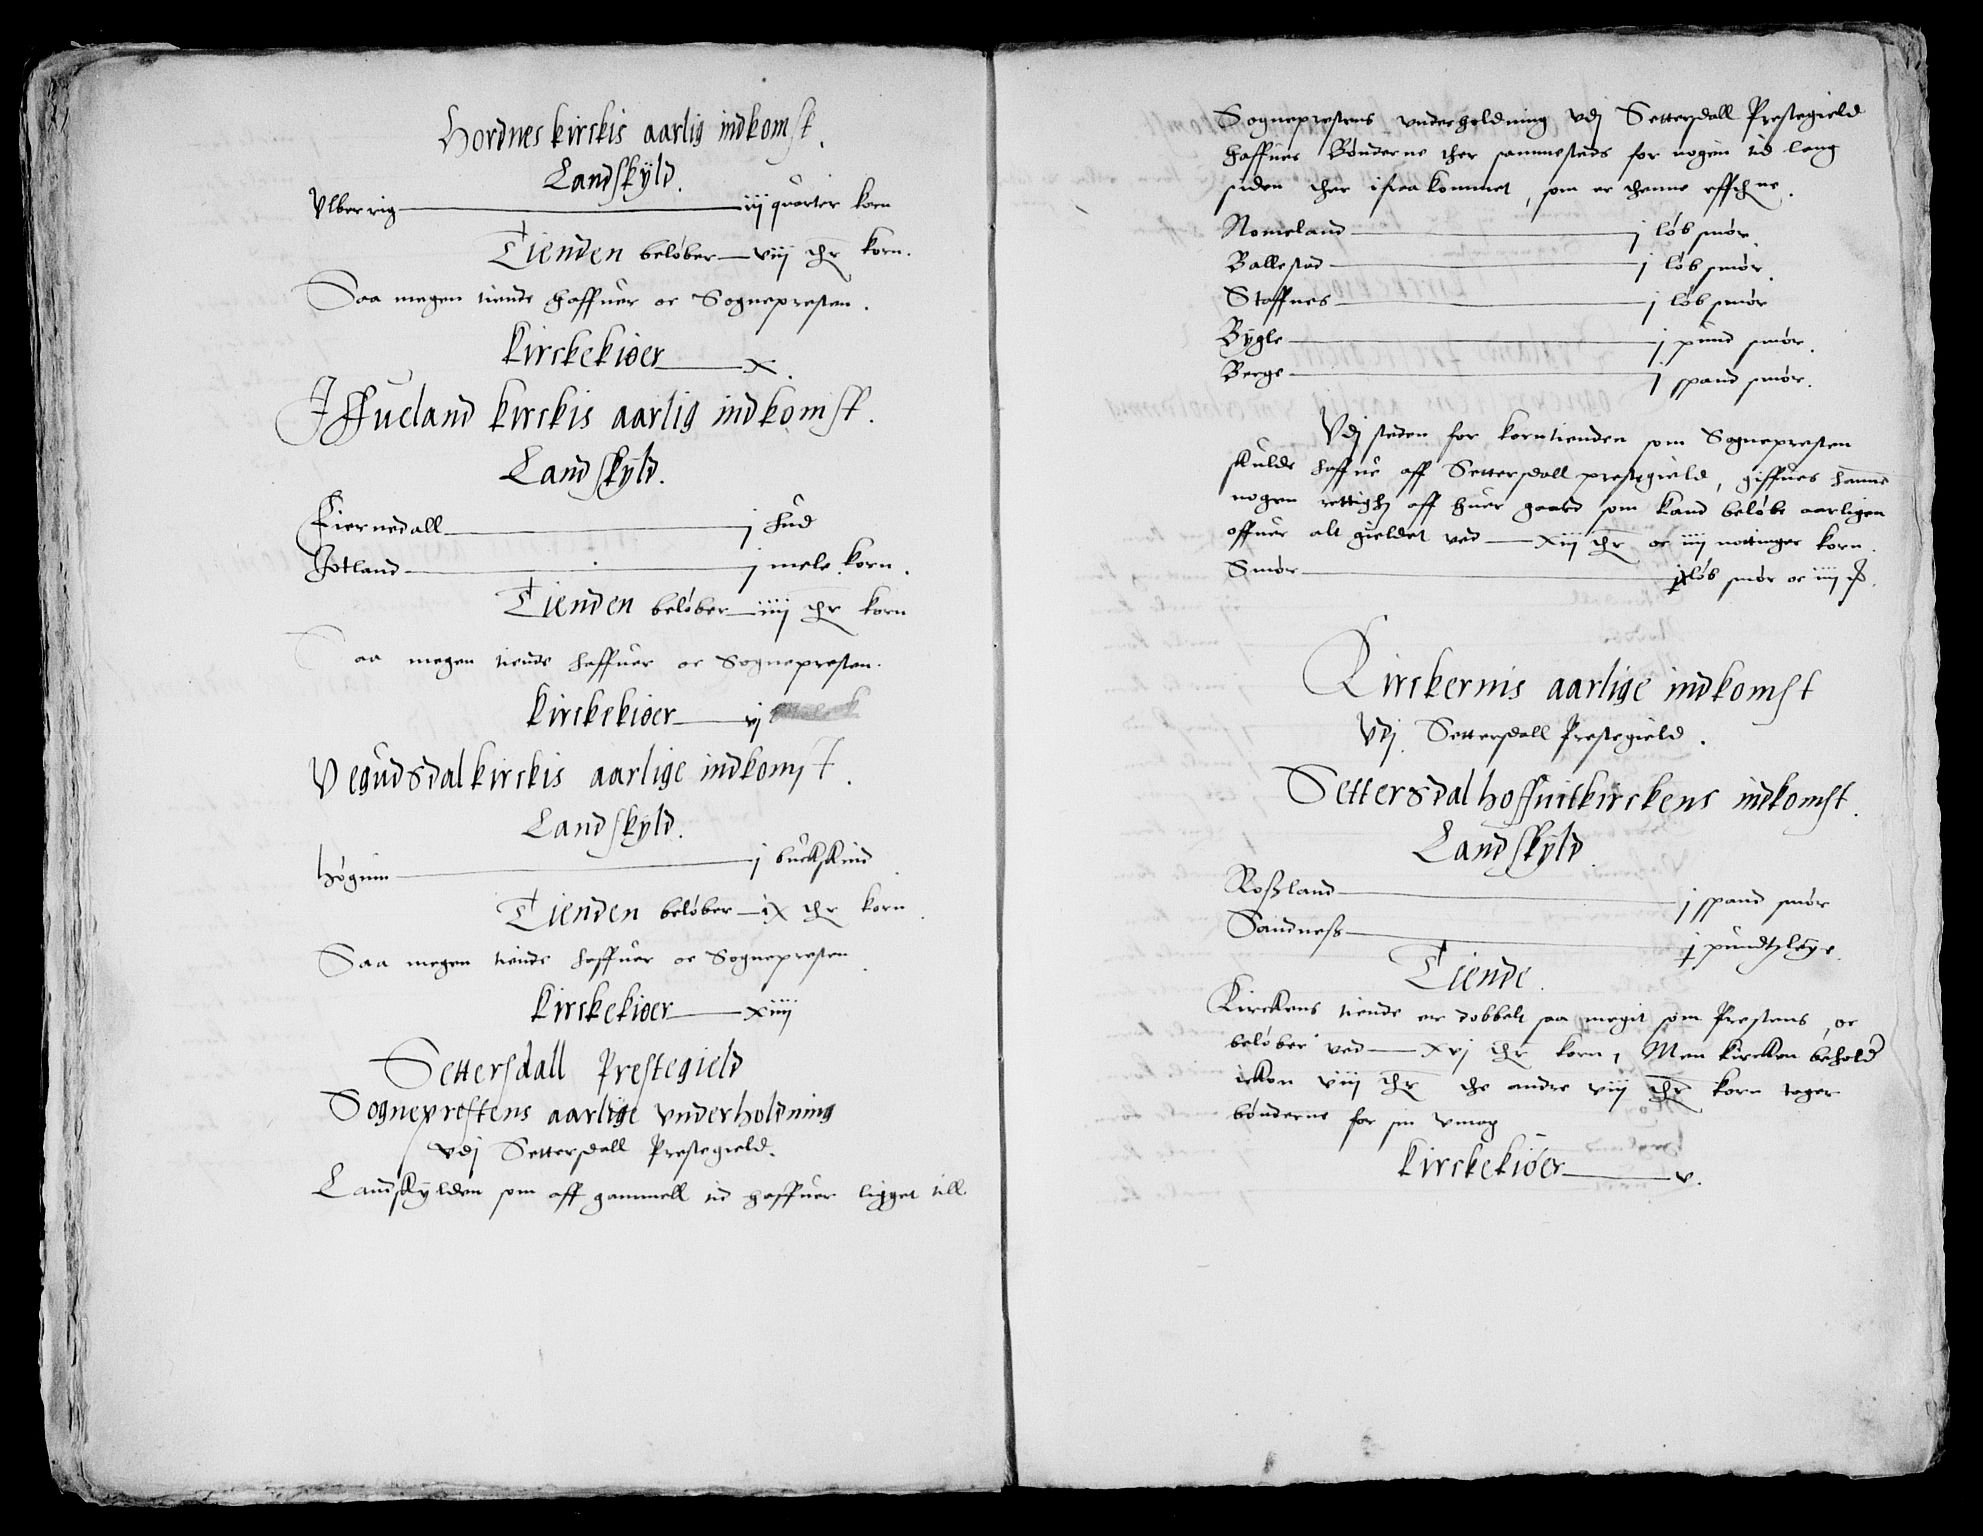 Hordnes kirckis aarlig indkomst.
Landskyld.
Vlberrig iij quarter korn
Tienden beløber viij thr korn.
Saa megen tiende haffuer oc Sognepresten.
Kirckekiøer x.
Iffueland kirckis aarlig indkomst.
Landskyld.
Kiernedall j hud
Jotland j mele korn.
Tienden beløber iiij thr korn
Saa megen tiende haffuer oc Sognepresten.
Kirckekiøer vj
Vegudsdal kirckis aarlige indkomst.
Landskyld.
Høgnin j buckskind
Tienden beløber ix thr korn.
Saa megen tiende haffuer oc Sognepresten.
Kirckekiøer xiiij
Settersdall Prestegield
Sogneprestens aarlige vnderholdning
vdj Settersdall Prestegield.
Landskylden som aff gammell tid haffuer ligget till
Sogneprestens vnderholdning vdj Settersdall Prestegield
haffuer Bønderne ther sammesteds for nogen tid lang
siden ther ifraa kommet, som er thenne effthne.
Nomeland j løb smør.
Ballestad j løb smør.
Staffnes j løb smør
Bygle j pund smør.
Berge j spand smør.
Vdj steden for korntienden som Sognepresten
skulde haffue aff Settersdall prestegield, giffues hannem
nogen rettigh aff huer gaard som kand beløbe aarligen
offuer alt gieldet ved xiij thr oc iiij nottinger korn.
Smør ix løb smør oc iiij
Kirckernis aarlige indkomst
Vdj Settersdall Prestegield.
Settersdal hoffuitkirckens indkomst.
Landskyld.
Roszland j spand smør
Sandness j pundtzløye.
Tiende.
Kirckens tiende er dobbelt saa megit som Prestens, oc
beløber ved xvj thr korn, Men kircken behold
ickon viij thr the andre viij thr korn tager
bønderne for sin vmag
Kirckekiøer v.